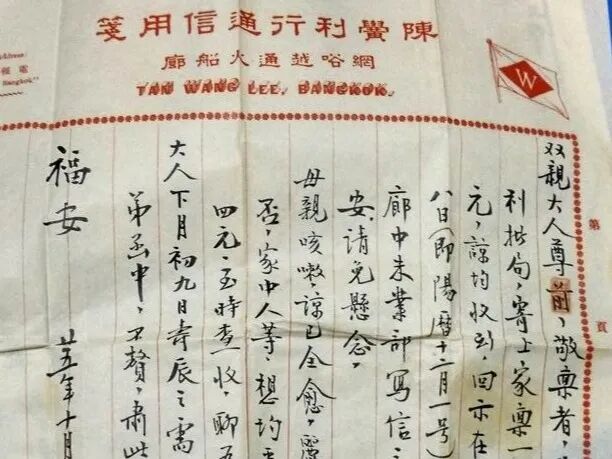 陳黌利行通信用箋
網峪越通大船廊
TAN WANG LEE, BANGKOK.
W
Address:
Bangkok."
第 頁
双親大人尊前，敬禀者，
利批局，寄上家禀一
元，諒均收到，回示在
八日（即陽曆十二月一号）
廊中末業部写信之
安，請免懸念，
母親咳嗽，諒已全愈，
否，家中人等，想均
四元，至時查收，聊
大人下月初九日壽辰之需
弟函中，不贅，肅此
福安
廿五年十月